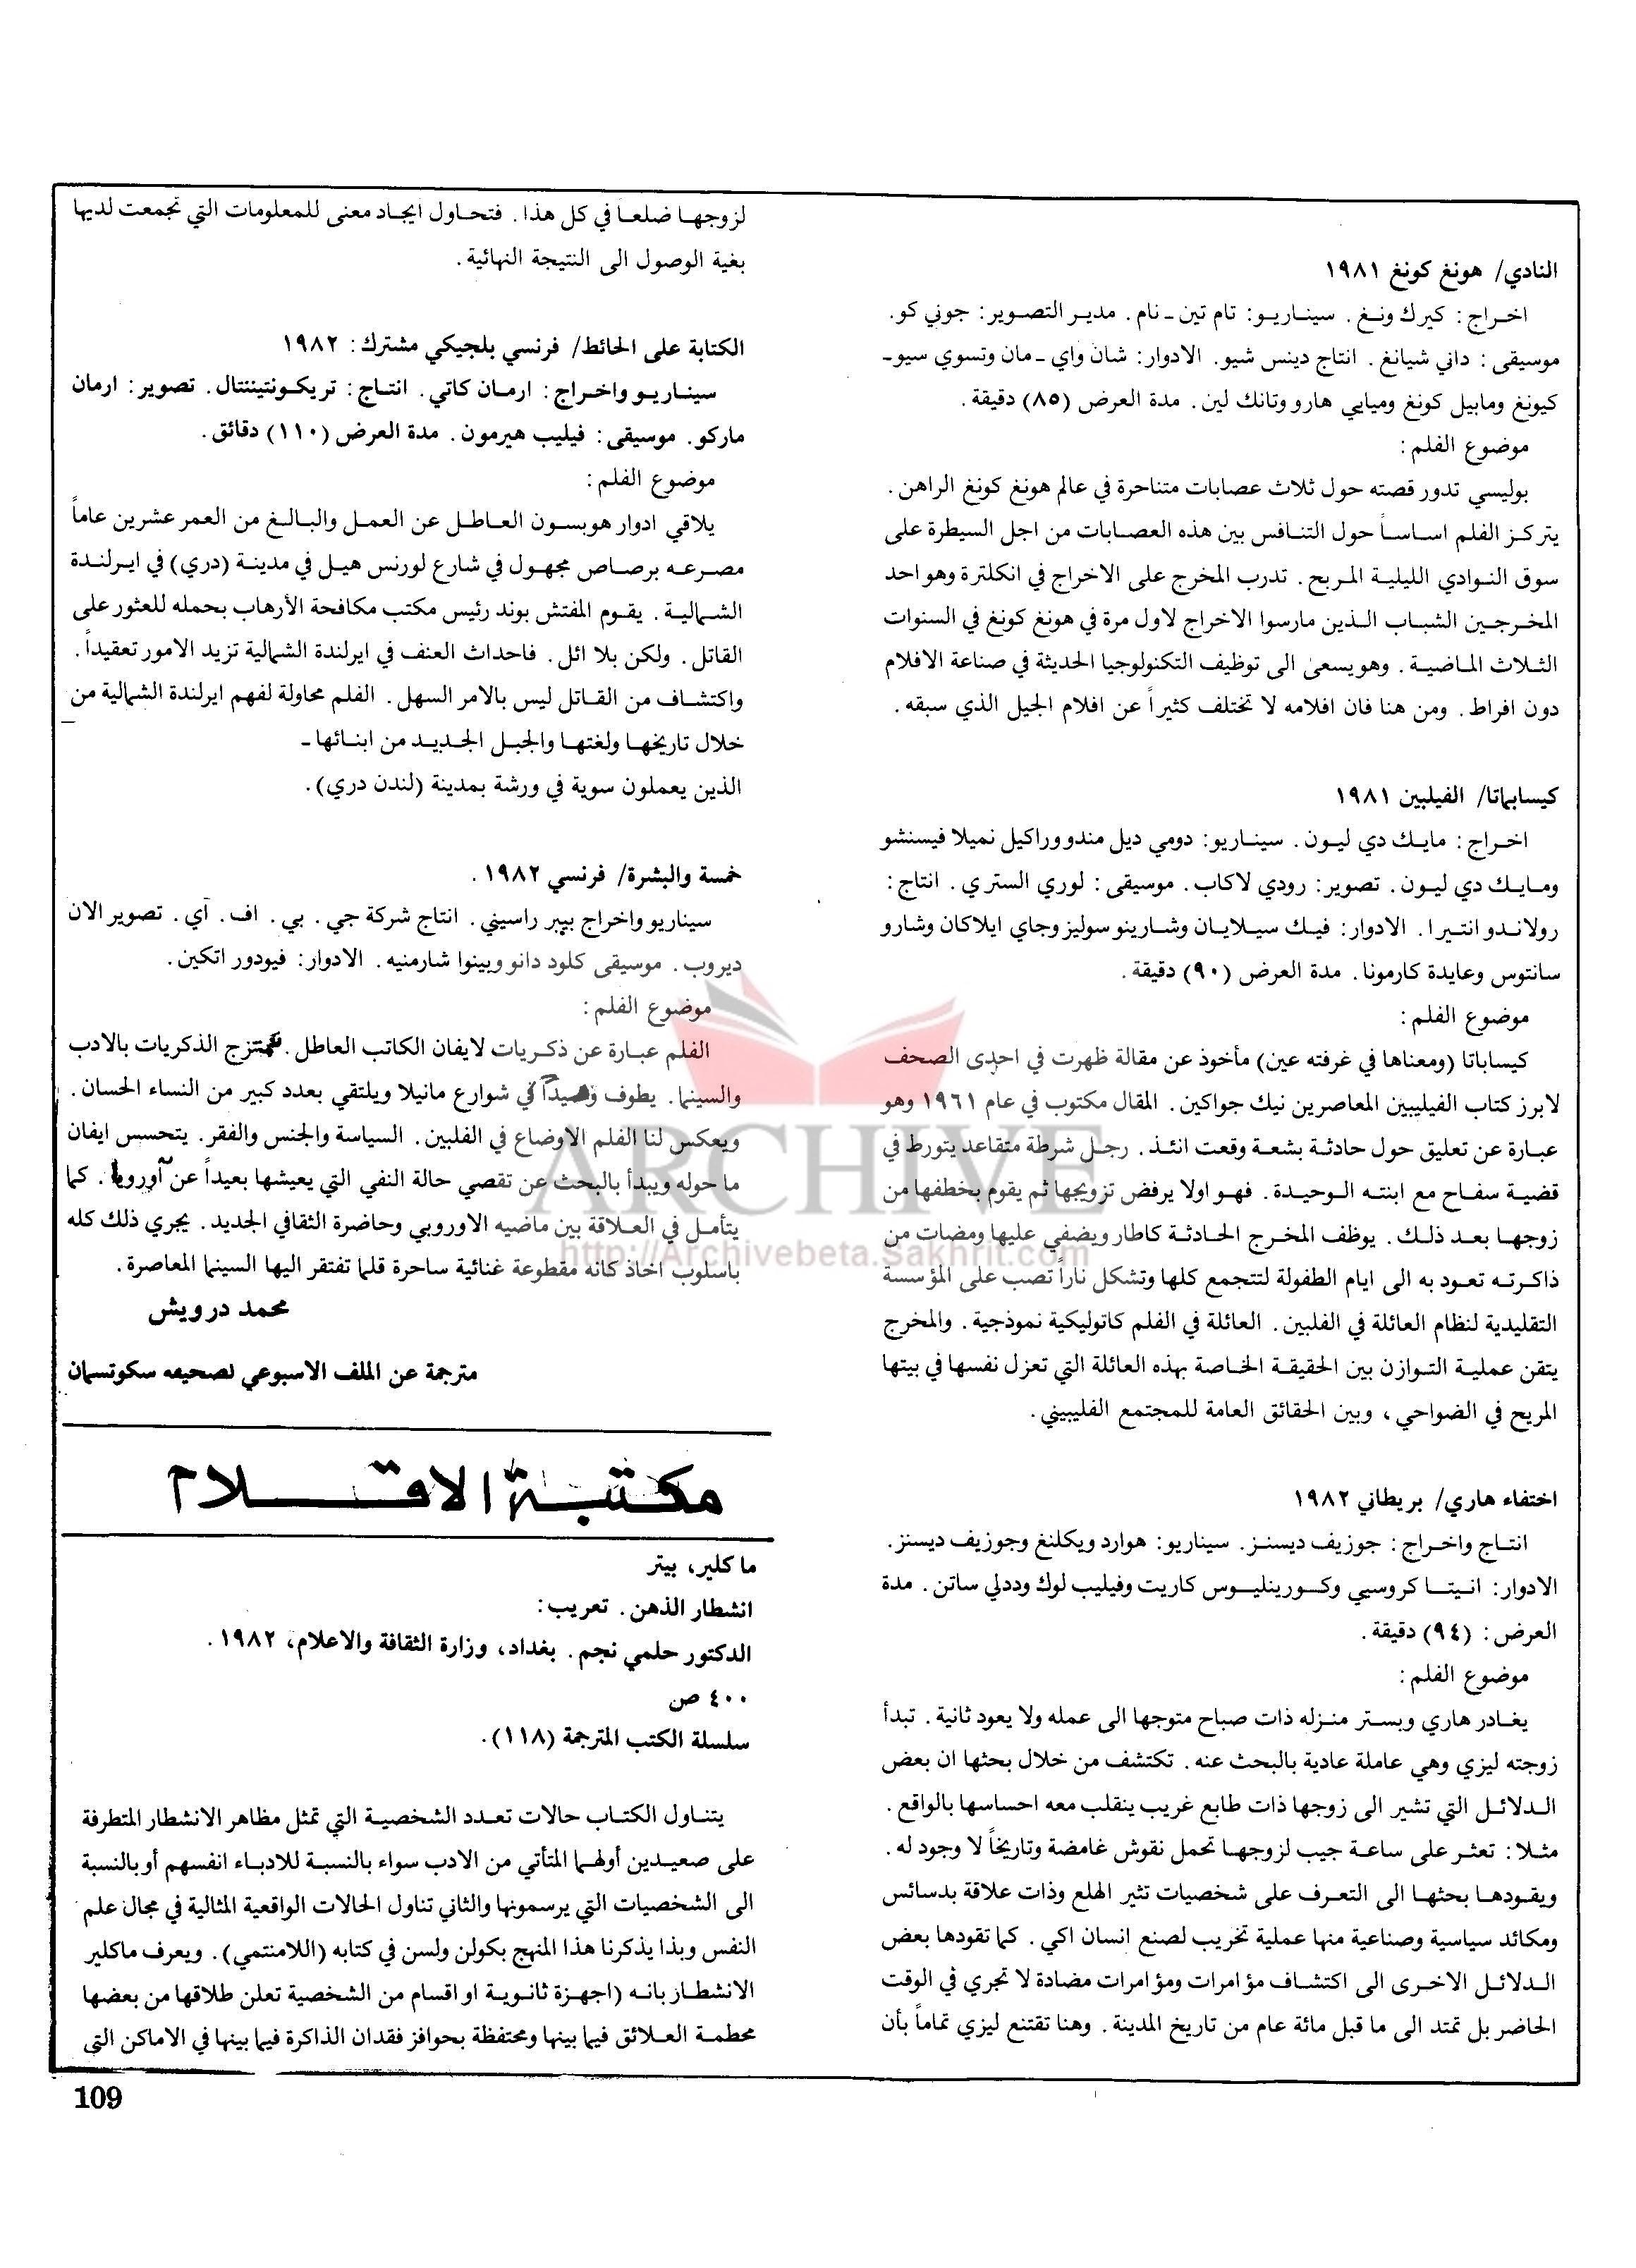 النادي/ هونغ كونغ ١٩٨١
اخراج: كيرك ونغ. سيناريو: تام تين ـ نام. مدير التصوير: جوني كو.
موسيقى: داني شيانغ. انتاج دينس شيو. الادوار: شان واي ـ مان وتسوي سيو ـ
كيونغ ومابيل كونغ وميايي هارو وتانك لين. مدة العرض (٨٥) دقيقة.
موضوع الفلم:
بوليسي تدور قصته حول ثلاث عصابات متناحرة في عالم هونغ كونغ الراهن.
يتركز الفلم اساساً حول التنافس بين هذه العصابات من اجل السيطرة على
سوق النوادي الليلية المربح. تدرب المخرج على الاخراج في انكلترة وهو احد
المخرجين الشباب الذين مارسوا الاخراج لاول مرة في هونغ كونغ في السنوات
الثلاث الماضية. وهو يسعى الى توظيف التكنولوجيا الحديثة في صناعة الافلام
دون افراط. ومن هنا فان افلامه لا تختلف كثيراً عن افلام الجيل الذي سبقه.
كيسابماتا/ الفيلبين ١٩٨١
اخراج: مايك دي ليون. سيناريو: دومي ديل مندو وراكيل نميلا فيسنشو
ومايك دي ليون. تصوير: رودي لاكاب. موسيقى: لوري الستري. انتاج:
رولاندو انتيرا. الادوار: فيك سيلايان وشارينو سوليز وجاي ايلاكان وشارو
سانتوس وعايدة كارمونا. مدة العرض (٩٠) دقيقة.
موضوع الفلم:
كيساباتا (ومعناها في غرفته عين) مأخوذ عن مقالة ظهرت في احدى الصحف
لابرز كتاب الفيليبين المعاصرين نيك جواكين. المقال مكتوب في عام ١٩٦١ وهو
عبارة عن تعليق حول حادثة بشعة وقعت انئذ. رجل شرطة متقاعد يتورط في
قضية سفاح مع ابنته الوحيدة. فهو اولا يرفض تزويجها ثم يقوم بخطفها من
زوجها بعد ذلك. يوظف المخرج الحادثة كاطار ويضفي عليها ومضات من
ذاكرته تعود به الى ايام الطفولة لتتجمع كلها وتشكل ناراً تصب على المؤسسة
التقليدية لنظام العائلة في الفلبين. العائلة في الفلم كاتوليكية نموذجية. والمخرج
يتقن عملية التوازن بين الحقيقة الخاصة بهذه العائلة التي تعزل نفسها في بيتها
المريح في الضواحي، وبين الحقائق العامة للمجتمع الفليبيني.
اختفاء هاري/ بريطاني ١٩٨٢
انتاج واخراج: جوزيف ديسنز. سيناريو: هوارد ويكلنغ وجوزيف ديسنز.
الادوار: انيتا كروسبي وكورينليوس كاريت وفيليب لوك وددلي ساتن. مدة
العرض: (٩٤) دقيقة.
موضوع الفلم:
يغادر هاري وبستر منزله ذات صباح متوجها الى عمله ولا يعود ثانية. تبدأ
زوجته ليزي وهي عاملة عادية بالبحث عنه. تكتشف من خلال بحثها ان بعض
الدلائل التي تشير الى زوجها ذات طابع غريب ينقلب معه احساسها بالواقع.
مثلا: تعثر على ساعة جيب لزوجها تحمل نقوش غامضة وتاريخاً لا وجود له.
ويقودها بحثها الى التعرف على شخصيات تثير الهلع وذات علاقة بدسائس
ومكائد سياسية وصناعية منها عملية تخريب لصنع انسان اكي. كما تقودها بعض
الدلائل الاخرى الى اكتشاف مؤامرات ومؤامرات مضادة لا تجري في الوقت
الحاضر بل تمتد الى ما قبل مائة عام من تاريخ المدينة. وهنا تقتنع ليزي تماماً بأن
لزوجها ضلعا في كل هذا. فتحاول ايجاد معنى للمعلومات التي تجمعت لديها
بغية الوصول الى النتيجة النهائية.
الكتابة على الحائط/ فرنسي بلجيكي مشترك: ١٩٨٢
سيناريو واخراج: ارمان كاتي. انتاج: تريكونتيننتال. تصوير: ارمان
ماركو. موسيقى: فيليب هيرمون. مدة العرض (١١٠) دقائق.
موضوع الفلم:
يلاقي ادوار هوبسون العاطل عن العمل والبالغ من العمر عشرين عاماً
مصرعه برصاص مجهول في شارع لورنس هيل في مدينة (دري) في ايرلندة
الشمالية. يقوم المفتش بوند رئيس مكتب مكافحة الأرهاب بحمله للعثور على
القاتل. ولكن بلا ائل. فاحداث العنف في ايرلندة الشمالية تزيد الامور تعقيداً.
واكتشاف من القاتل ليس بالامر السهل. الفلم محاولة لفهم ايرلندة الشمالية من
خلال تاريخها ولغتها والجيل الجديد من ابنائها ـ
الذين يعملون سوية في ورشة بمدينة (لندن دري).
خمسة والبشرة/ فرنسي ١٩٨٢.
سيناريو واخراج بيير راسيني. انتاج شركة جي. بي. اف. آي. تصوير الان
ديروب. موسيقى كلود دانو وبينوا شارمنيه. الادوار: فيودور اتكين.
موضوع الفلم:
الفلم عبارة عن ذكريات لايفان الكاتب العاطل. تمتزج الذكريات بالادب
والسينما. يطوف وحيداً في شوارع مانيلا ويلتقي بعدد كبير من النساء الحسان.
ويعكس لنا الفلم الاوضاع في الفلبين. السياسة والجنس والفقر. يتحسس ايفان
ما حوله ويبدأ بالبحث عن تقصي حالة النفي التي يعيشها بعيداً عن أوروبا. كما
يتأمل في العلاقة بين ماضيه الاوروبي وحاضرة الثقافي الجديد. يجري ذلك كله
باسلوب اخاذ كانه مقطوعة غنائية ساحرة قلما تفتقر اليها السينما المعاصرة.
محمد درويش
مترجمة عن الملف الاسبوعي لصحيفه سكوتسمان
مكتبة الاقلام
ماكلير، بيتر
انشطار الذهن. تعريب:
الدكتور حلمي نجم. بغداد، وزارة الثقافة والاعلام، ١٩٨٢.
٤٠٠ ص
سلسلة الكتب المترجمة (١١٨).
يتناول الكتاب حالات تعدد الشخصية التي تمثل مظاهر الانشطار المتطرفة
على صعيدين أولهما المتأتي من الادب سواء بالنسبة للادباء انفسهم أو بالنسبة
الى الشخصيات التي يرسمونها والثاني تناول الحالات الواقعية المثالية في مجال علم
النفس وبذا يذكرنا هذا المنهج بكولن ولسن في كتابه (اللامنتمي). ويعرف ماكلير
الانشطار بانه (اجهزة ثانوية او اقسام من الشخصية تعلن طلاقها من بعضها
محطمة العلائق فيما بينها ومحتفظة بحوافز فقدان الذاكرة فيما بينها في الاماكن التي
109
ARCHIVE
http://Archivebeta.Sakhrit.com